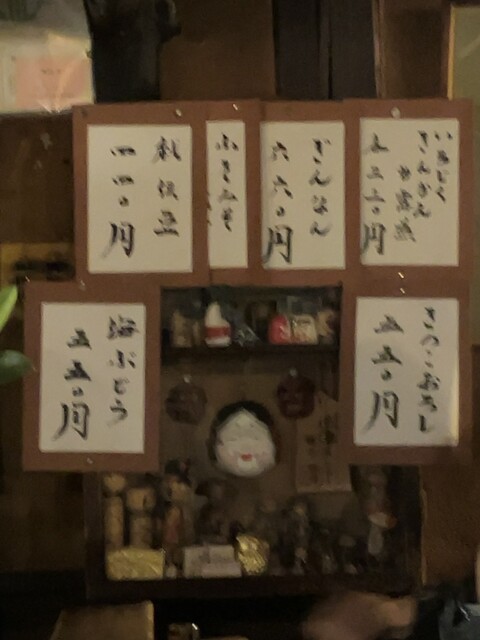 いちじく
きんかん
甘露煮
五五〇円
ぎんなん
六六〇円
ふきみそ
枝豆
四四〇円
きのこおろし
五五〇円
海ぶどう
五五〇円